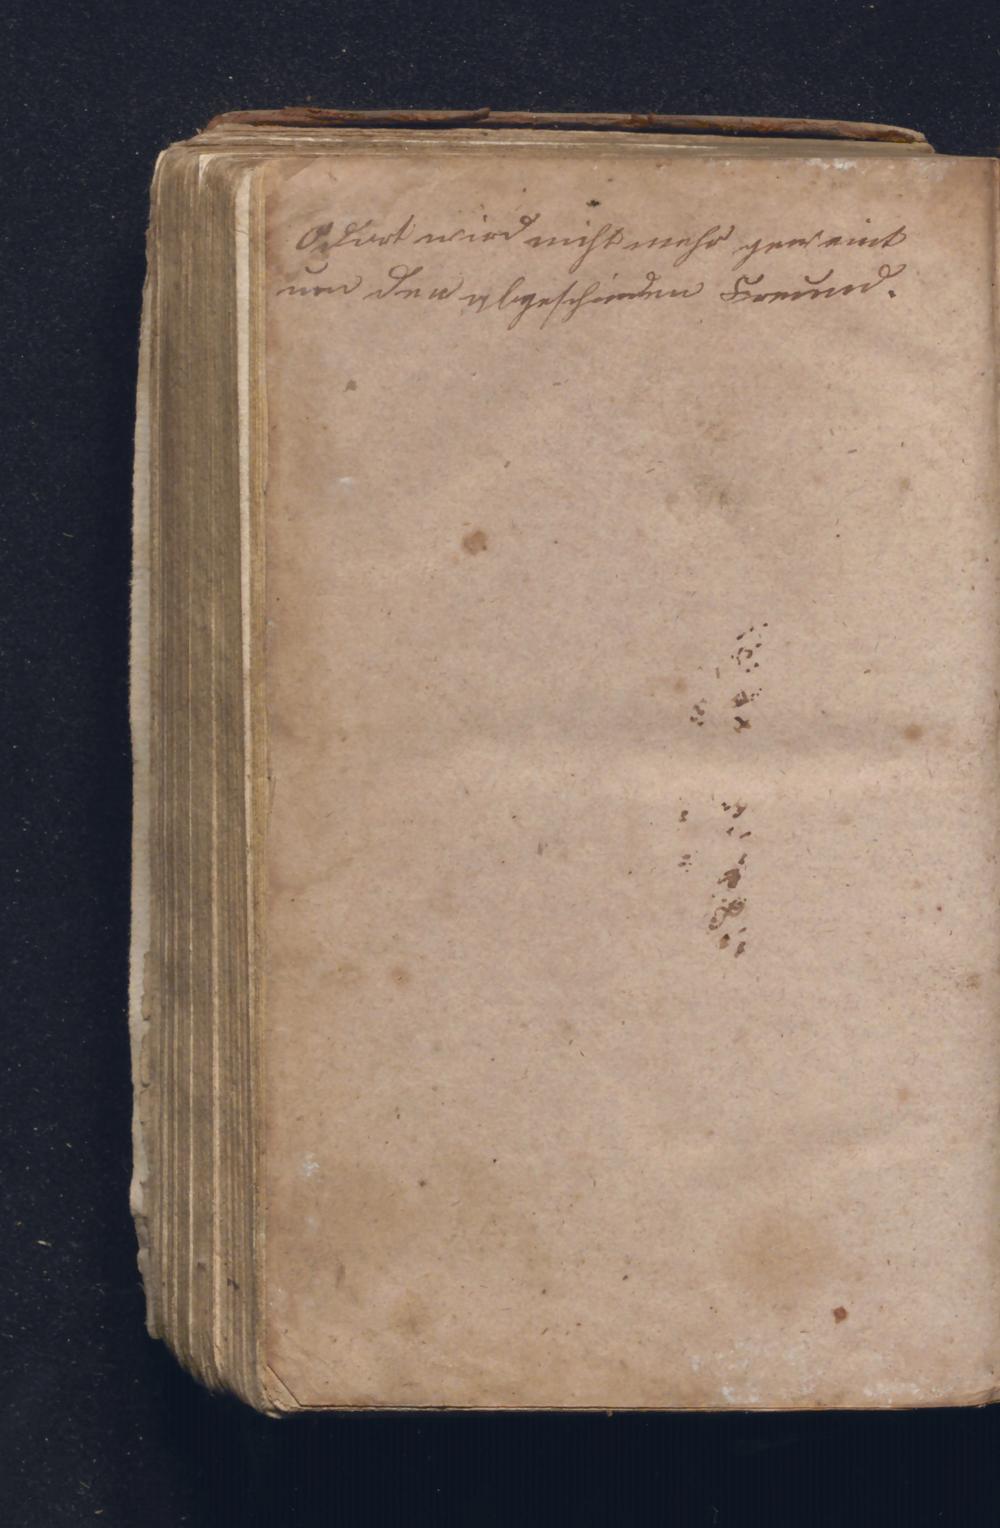 O dort wird nicht mehr geweint
um den abgeschieden Freund.